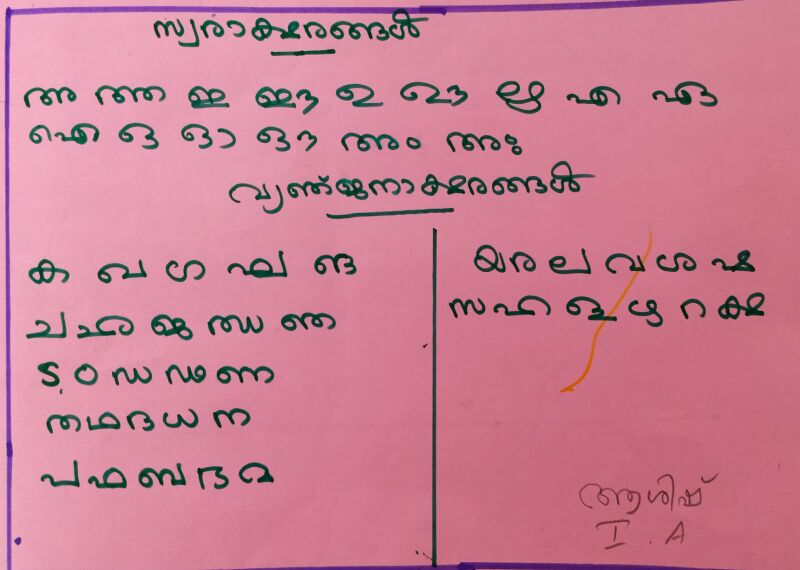 സ്വരാക്ഷരങ്ങൾ
അ ആ ഇ ഈ ഉ ഊ ഋ എ ഏ
ഐ ഒ ഓ ഔ അം അഃ
വ്യഞ്ജനാക്ഷരങ്ങൾ
ക ഖ ഗ ഘ ങ
ച ഛ ജ ഝ ഞ
ട ഠ ഡ ഢ ണ
ത ഥ ദ ധ ന
പ ഫ ബ ഭ മ
യ ര ല വ ശ ഷ
സ ഹ ള ഴ റ ക്ഷ
ആശിഷ്
I . A